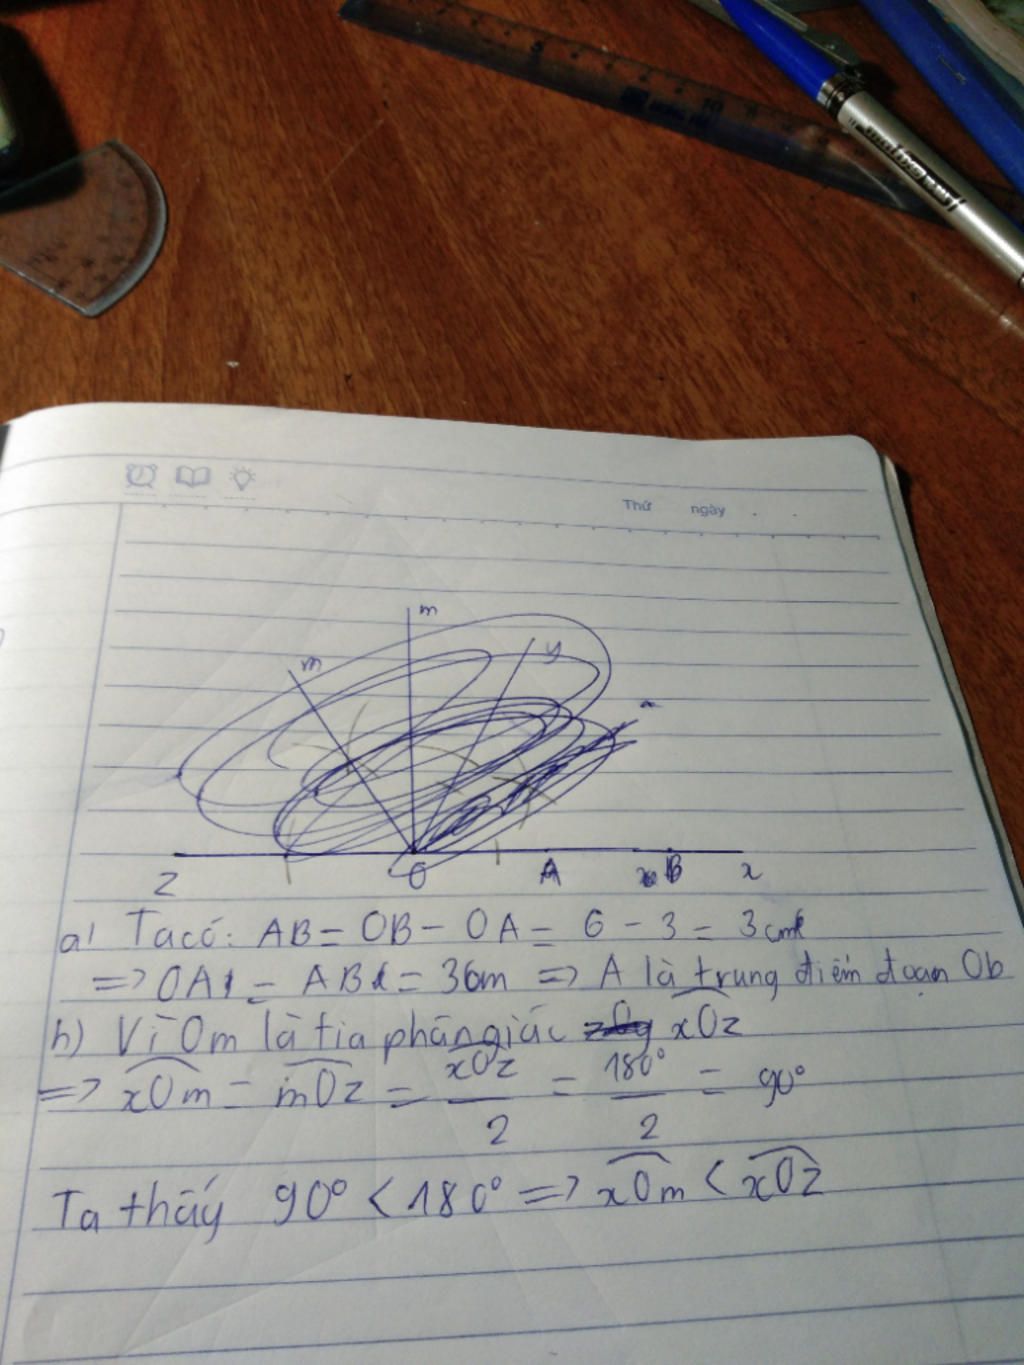 Thứ ngày
m
m
y
Z O A B x
a) Ta có: AB = OB - OA = 6 - 3 = 3cm
=> OA = AB = 3cm => A là trung điểm đoạn Ob
b) Vì Om là tia phân giác xOz
=> xOm = mOz = xOz/2 = 180°/2 = 90°
Ta thấy 90° < 180° => xOm < xOz